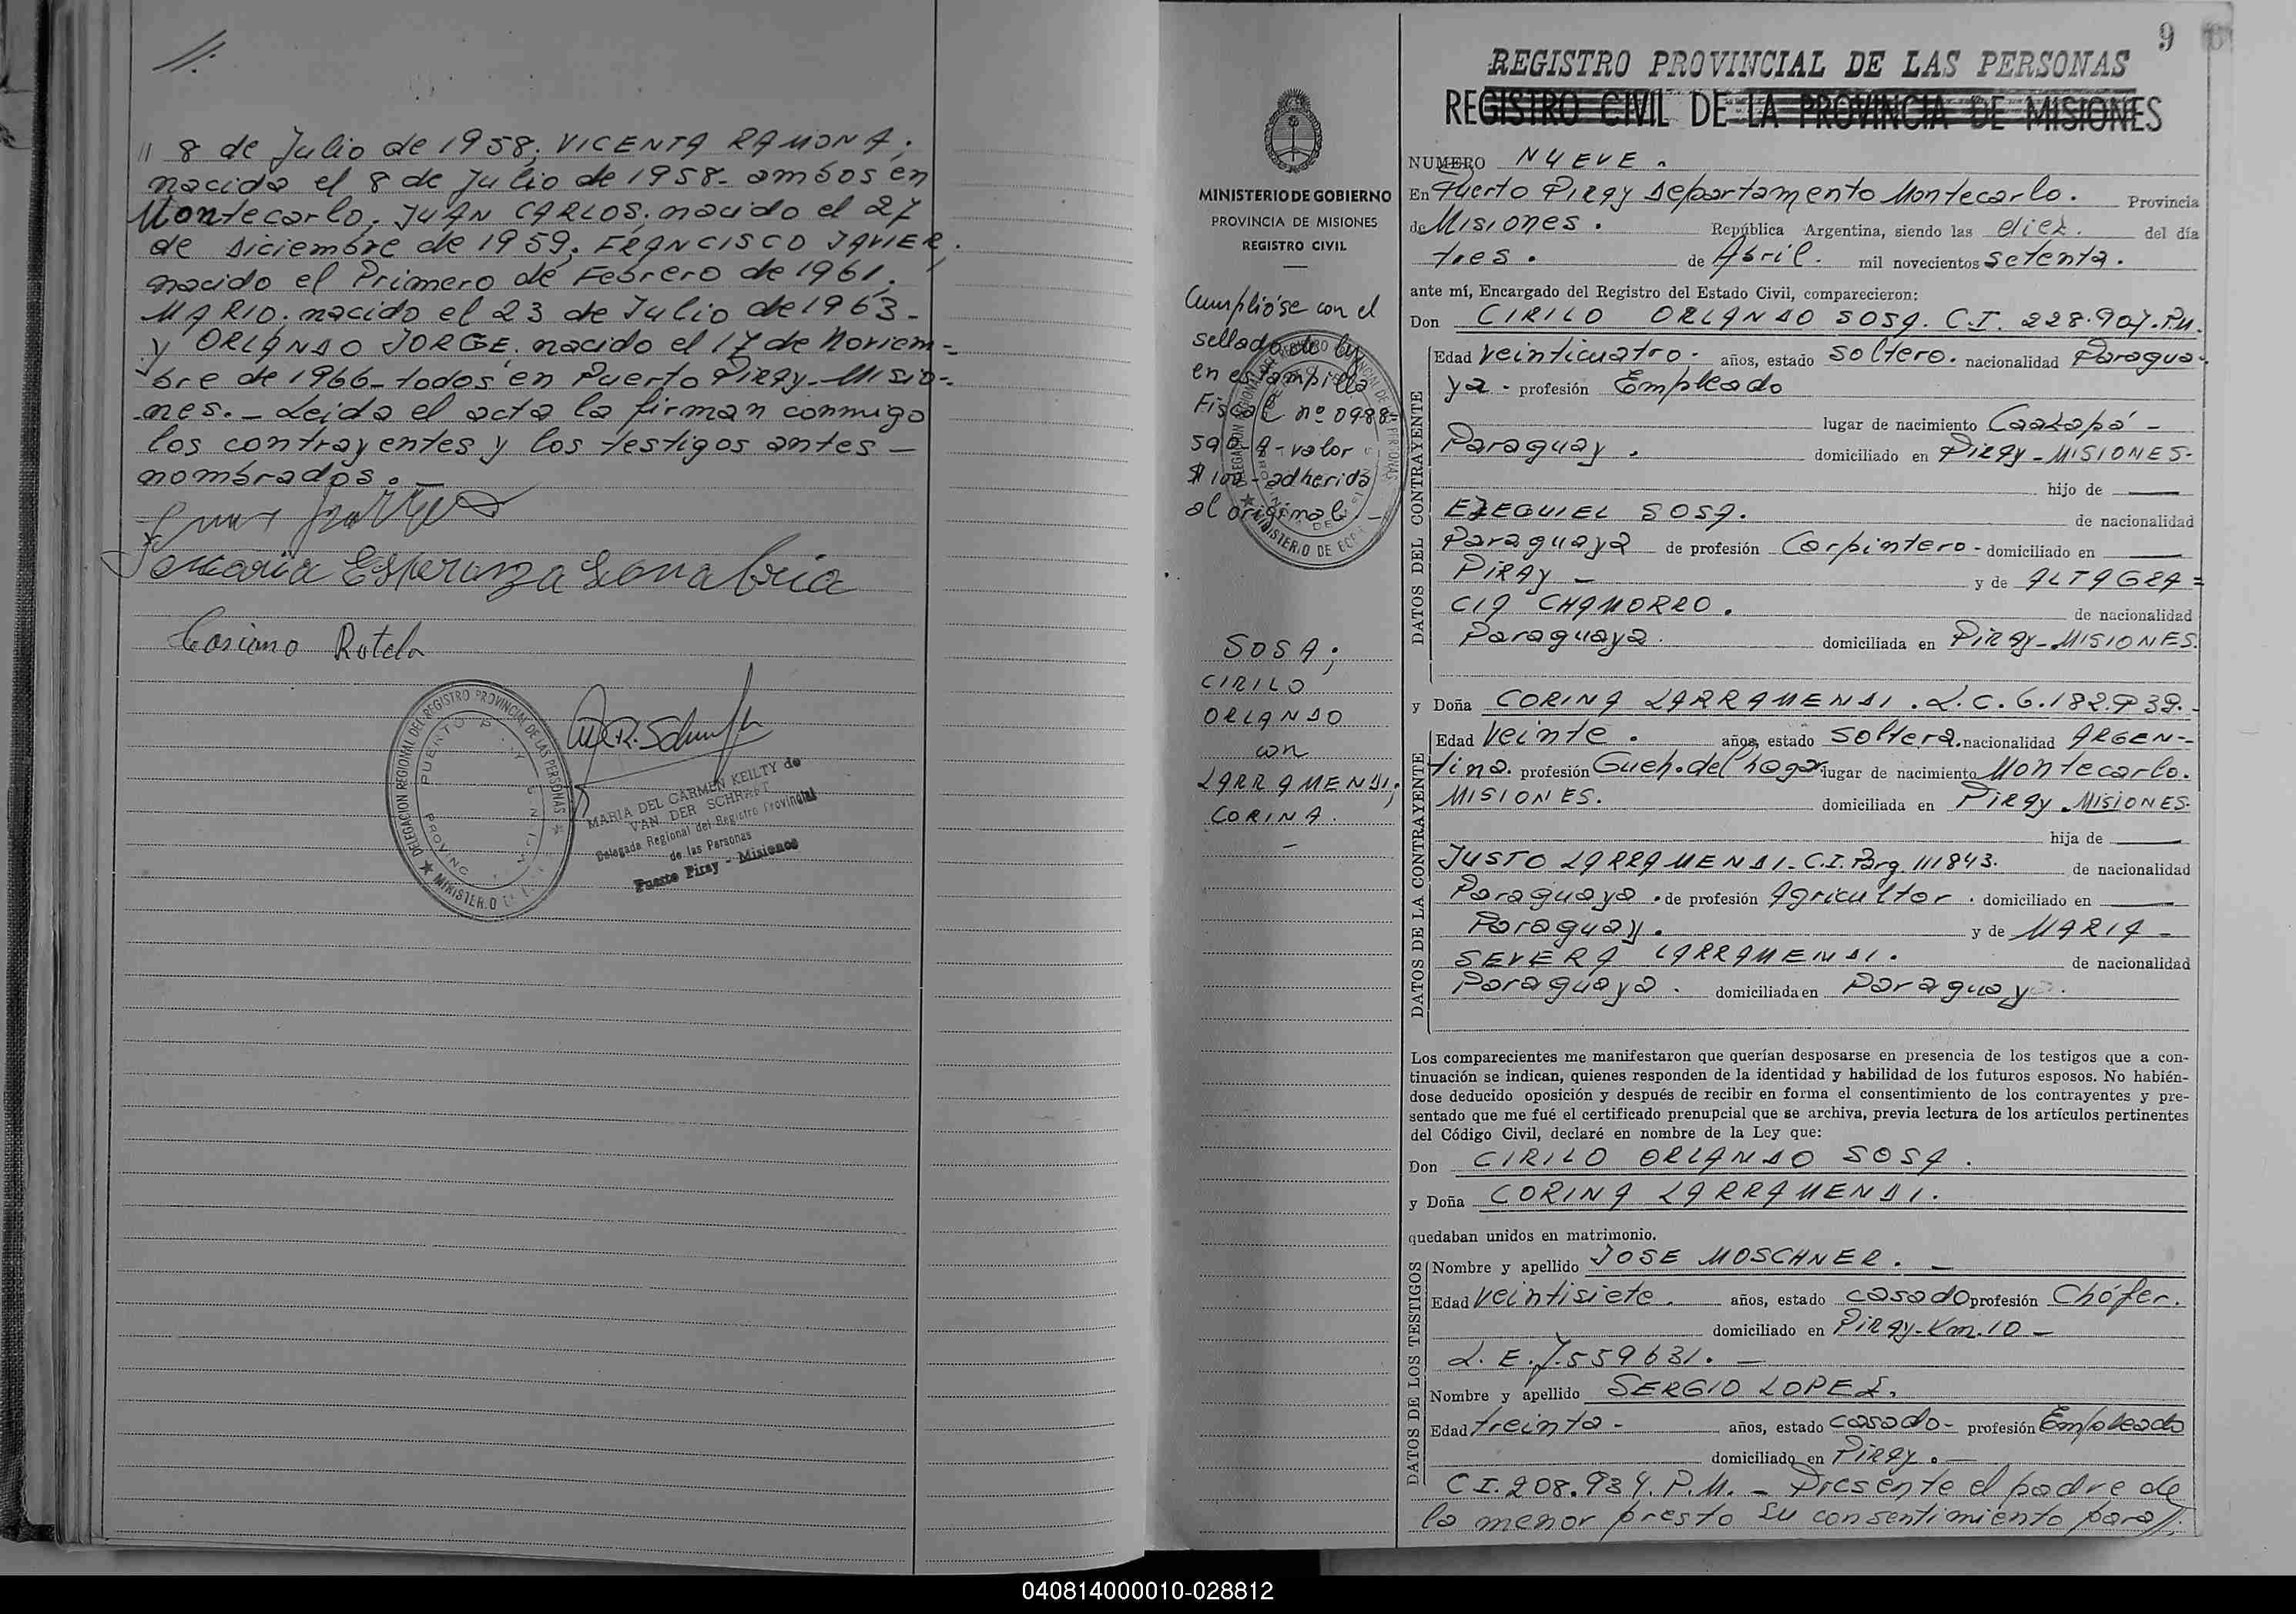 //.
" 8 de Julio de 1958; VICENTA RAMONA;
nacida el 8 de Julio de 1958- ambos en
Montecarlo, JUAN CARLOS. nacido el 27
de Diciembre de 1959; FRANCISCO JAVIER,
nacido el Primero de Febrero de 1961,
MARIO. nacido el 23 de Julio de 1963-
y ORLANDO JORGE. nacido el 17 de Noviem-
bre de 1966- todos en Puerto PIRAY- Misio-
nes.- Leida el acta la firman conmigo
los contrayentes y los testigos antes-
nombrados.-
Esperanza
Casiano Rotela
DELEGACION REGIONAL DEL REGISTRO PROVINCIAL DE LAS PERSONAS
MARIA DEL CARMEN KEILTY de
VAN DER SCHRAFT
Delegada Regional del Registro Provincial
de las Personas
Puerto Piray - Misiones
9
REGISTRO PROVINCIAL DE LAS PERSONAS
REGISTRO CIVIL DE LA PROVINCIA DE MISIONES
MINISTERIO DE GOBIERNO
PROVINCIA DE MISIONES
REGISTRO CIVIL
Cumplióse con el
sellado de ley
en estampilla
Fiscal nº 0988
590 A-valor
$ 100- adherida
al original.-
SOSA;
CIRILO
ORLANDO
con
LARRAMENDI,
CORINA.
-
NUMERO NUEVE.
En Puerto PIRAY Departamento Montecarlo. Provincia
de Misiones. República Argentina, siendo las diez. del día
tres. de Abril. mil novecientos setenta.
ante mí, Encargado del Registro del Estado Civil, comparecieron:
Don CIRILO ORLANDO SOSA. C.I. 228.907.P.M.
DATOS DEL CONTRAYENTE
Edad veinticuatro- años, estado soltero. nacionalidad Paragua-
ya- profesión Empleado
lugar de nacimiento Caazapá-
Paraguay. domiciliado en PIRAY-MISIONES-
hijo de
EZEQUIEL SOSA. de nacionalidad
Paraguaya de profesión Carpintero- domiciliado en
PIRAY- y de ALTAGRA=
CIA CHAMORRO. de nacionalidad
Paraguaya. domiciliada en PIRAY-MISIONES.
y Doña CORINA LARRAMENDI. L.C. 6.182.939.-
DATOS DE LA CONTRAYENTE
Edad Veinte. años, estado soltera. nacionalidad ARGEN-
tina. profesión Queh. del hogar lugar de nacimiento Montecarlo.
MISIONES. domiciliada en PIRAY. MISIONES.
hija de
JUSTO LARRAMENDI- C.I. Parg. 111843. de nacionalidad
Paraguaya. de profesión Agricultor. domiciliado en
Paraguay. y de MARIA-
SEVERA LARRAMENDI. de nacionalidad
Paraguaya. domiciliada en Paraguay.
Los comparecientes me manifestaron que querían desposarse en presencia de los testigos que a con-
tinuación se indican, quienes responden de la identidad y habilidad de los futuros esposos. No habién-
dose deducido oposición y después de recibir en forma el consentimiento de los contrayentes y pre-
sentado que me fué el certificado prenupcial que se archiva, previa lectura de los artículos pertinentes
del Código Civil, declaré en nombre de la Ley que:
Don CIRILO ORLANDO SOSA.
y Doña CORINA LARRAMENDI.
quedaban unidos en matrimonio.
DATOS DE LOS TESTIGOS
Nombre y apellido JOSE MOSCHNER.-
Edad veintisiete. años, estado casado profesión Chófer.
domiciliado en PIRAY-Km.10-
L.E. 7.559631.-
Nombre y apellido SERGIO LOPEZ.
Edad treinta- años, estado casado- profesión Empleado
domiciliado en PIRAY.-
C.I. 208.934. P.M.- Presente el padre de
la menor presto su consentimiento para//.
040814000010-028812